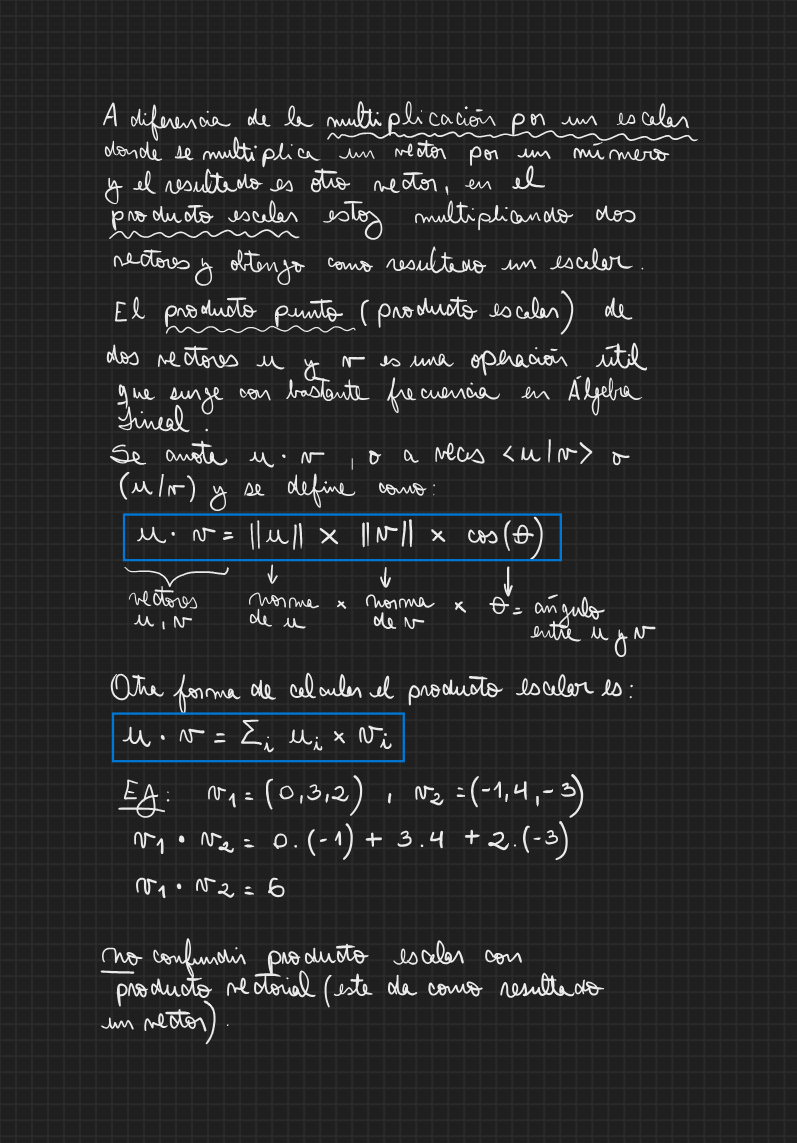 A diferencia de la multiplicación por un escalar
donde se multiplica un vector por un número
y el resultado es otro vector, en el
producto escalar estoy multiplicando dos
vectores y obtengo como resultado un escalar.
El producto punto (producto escalar) de
dos vectores u y v es una operación útil
que surge con bastante frecuencia en Álgebra
Lineal.
Se anota u · v , o a veces <u|v> o
(u/v) y se define como:
u · v = ||u|| × ||v|| × cos(θ)
vectores norma × norma × θ = ángulo
u, v de u de v entre u y v
Otra forma de calcular el producto escalar es:
u · v = Σᵢ uᵢ × vᵢ
EJ: v₁ = (0,3,2) , v₂ = (-1,4,-3)
v₁ · v₂ = 0.(-1) + 3.4 + 2.(-3)
v₁ · v₂ = 6
no confundir producto escalar con
producto vectorial (este da como resultado
un vector).